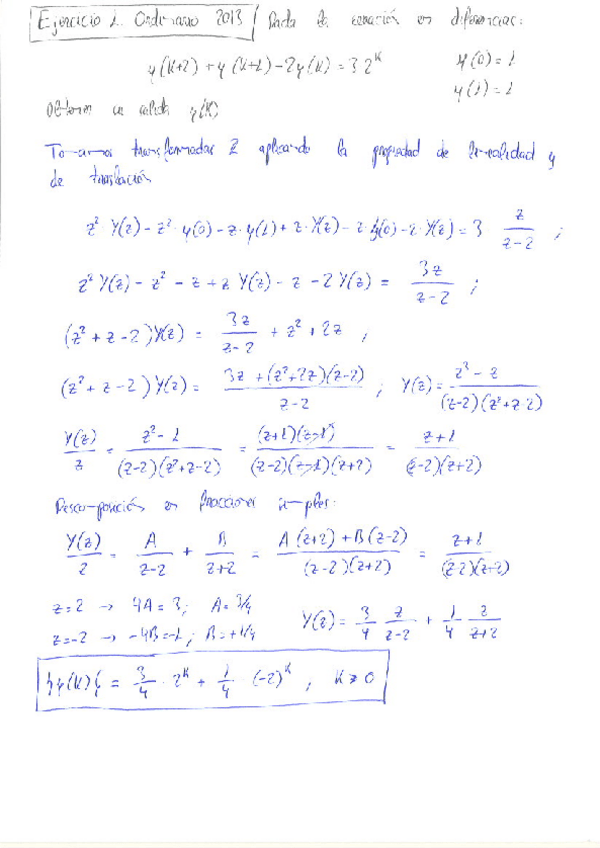 Ejercicio 1. Ordinario 2013 / Dada la ecuación en diferencias:
y(K+2) + y(K+1) - 2y(K) = 3·2^K y(0) = 1
y(1) = 1
Obtener la salida y(K)
Tomamos transformadas Z aplicando la propiedad de linealidad y
de traslación
z²·Y(z) - z²·y(0) - z·y(1) + z·Y(z) - z·y(0) - 2·Y(z) = 3 z/(z-2) ;
z² Y(z) - z² - z + z Y(z) - z - 2 Y(z) = 3z/(z-2) ;
(z² + z - 2) Y(z) = 3z/(z-2) + z² + 2z ;
(z² + z - 2) Y(z) = (3z + (z²+2z)(z-2))/(z-2) ; Y(z) = (z³ - z)/((z-2)(z²+z-2))
Y(z)/z = (z² - 1)/((z-2)(z²+z-2)) = ((z+1)(z-1))/((z-2)(z-1)(z+2)) = (z+1)/((z-2)(z+2))
Descomposición en fracciones simples:
Y(z)/z = A/(z-2) + B/(z+2) = (A(z+2) + B(z-2))/((z-2)(z+2)) = (z+1)/((z-2)(z+2))
z=2 → 4A = 3 ; A = 3/4 Y(z) = 3/4 z/(z-2) + 1/4 z/(z+2)
z=-2 → -4B = -1 ; B = +1/4
{y(K)} = 3/4 · 2^K + 1/4 · (-2)^K ; K ≥ 0